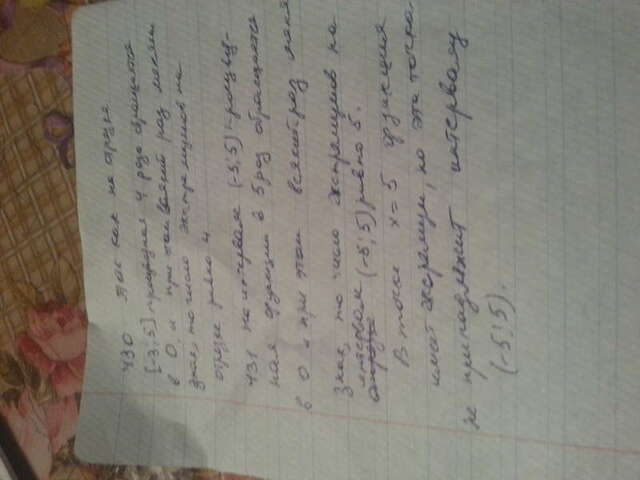 430 Так как на отрезке
[-3; 5] производная 4 раза обращается
в 0, и при этом всякий раз меняет
знак, то число экстремумов на
отрезке равно 4
431 На интервале (-5; 5) - производ-
ная функции в 5 раз обращается
в 0 и при этом всякий раз меняя
знак, то число экстремумов на
интервале (-5; 5) равно 5.
отрезке
В точке x = 5 функция
имеет экстремум, но эта точка
не принадлежит интервалу
(-5; 5).